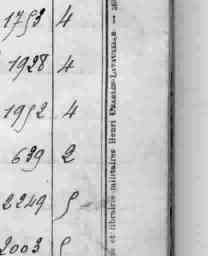 1753 4
1928 4
1952 4
639 2
2249 5
2003 5
et librairie militaires Henri CHARLES-LAVAUZELLE. —